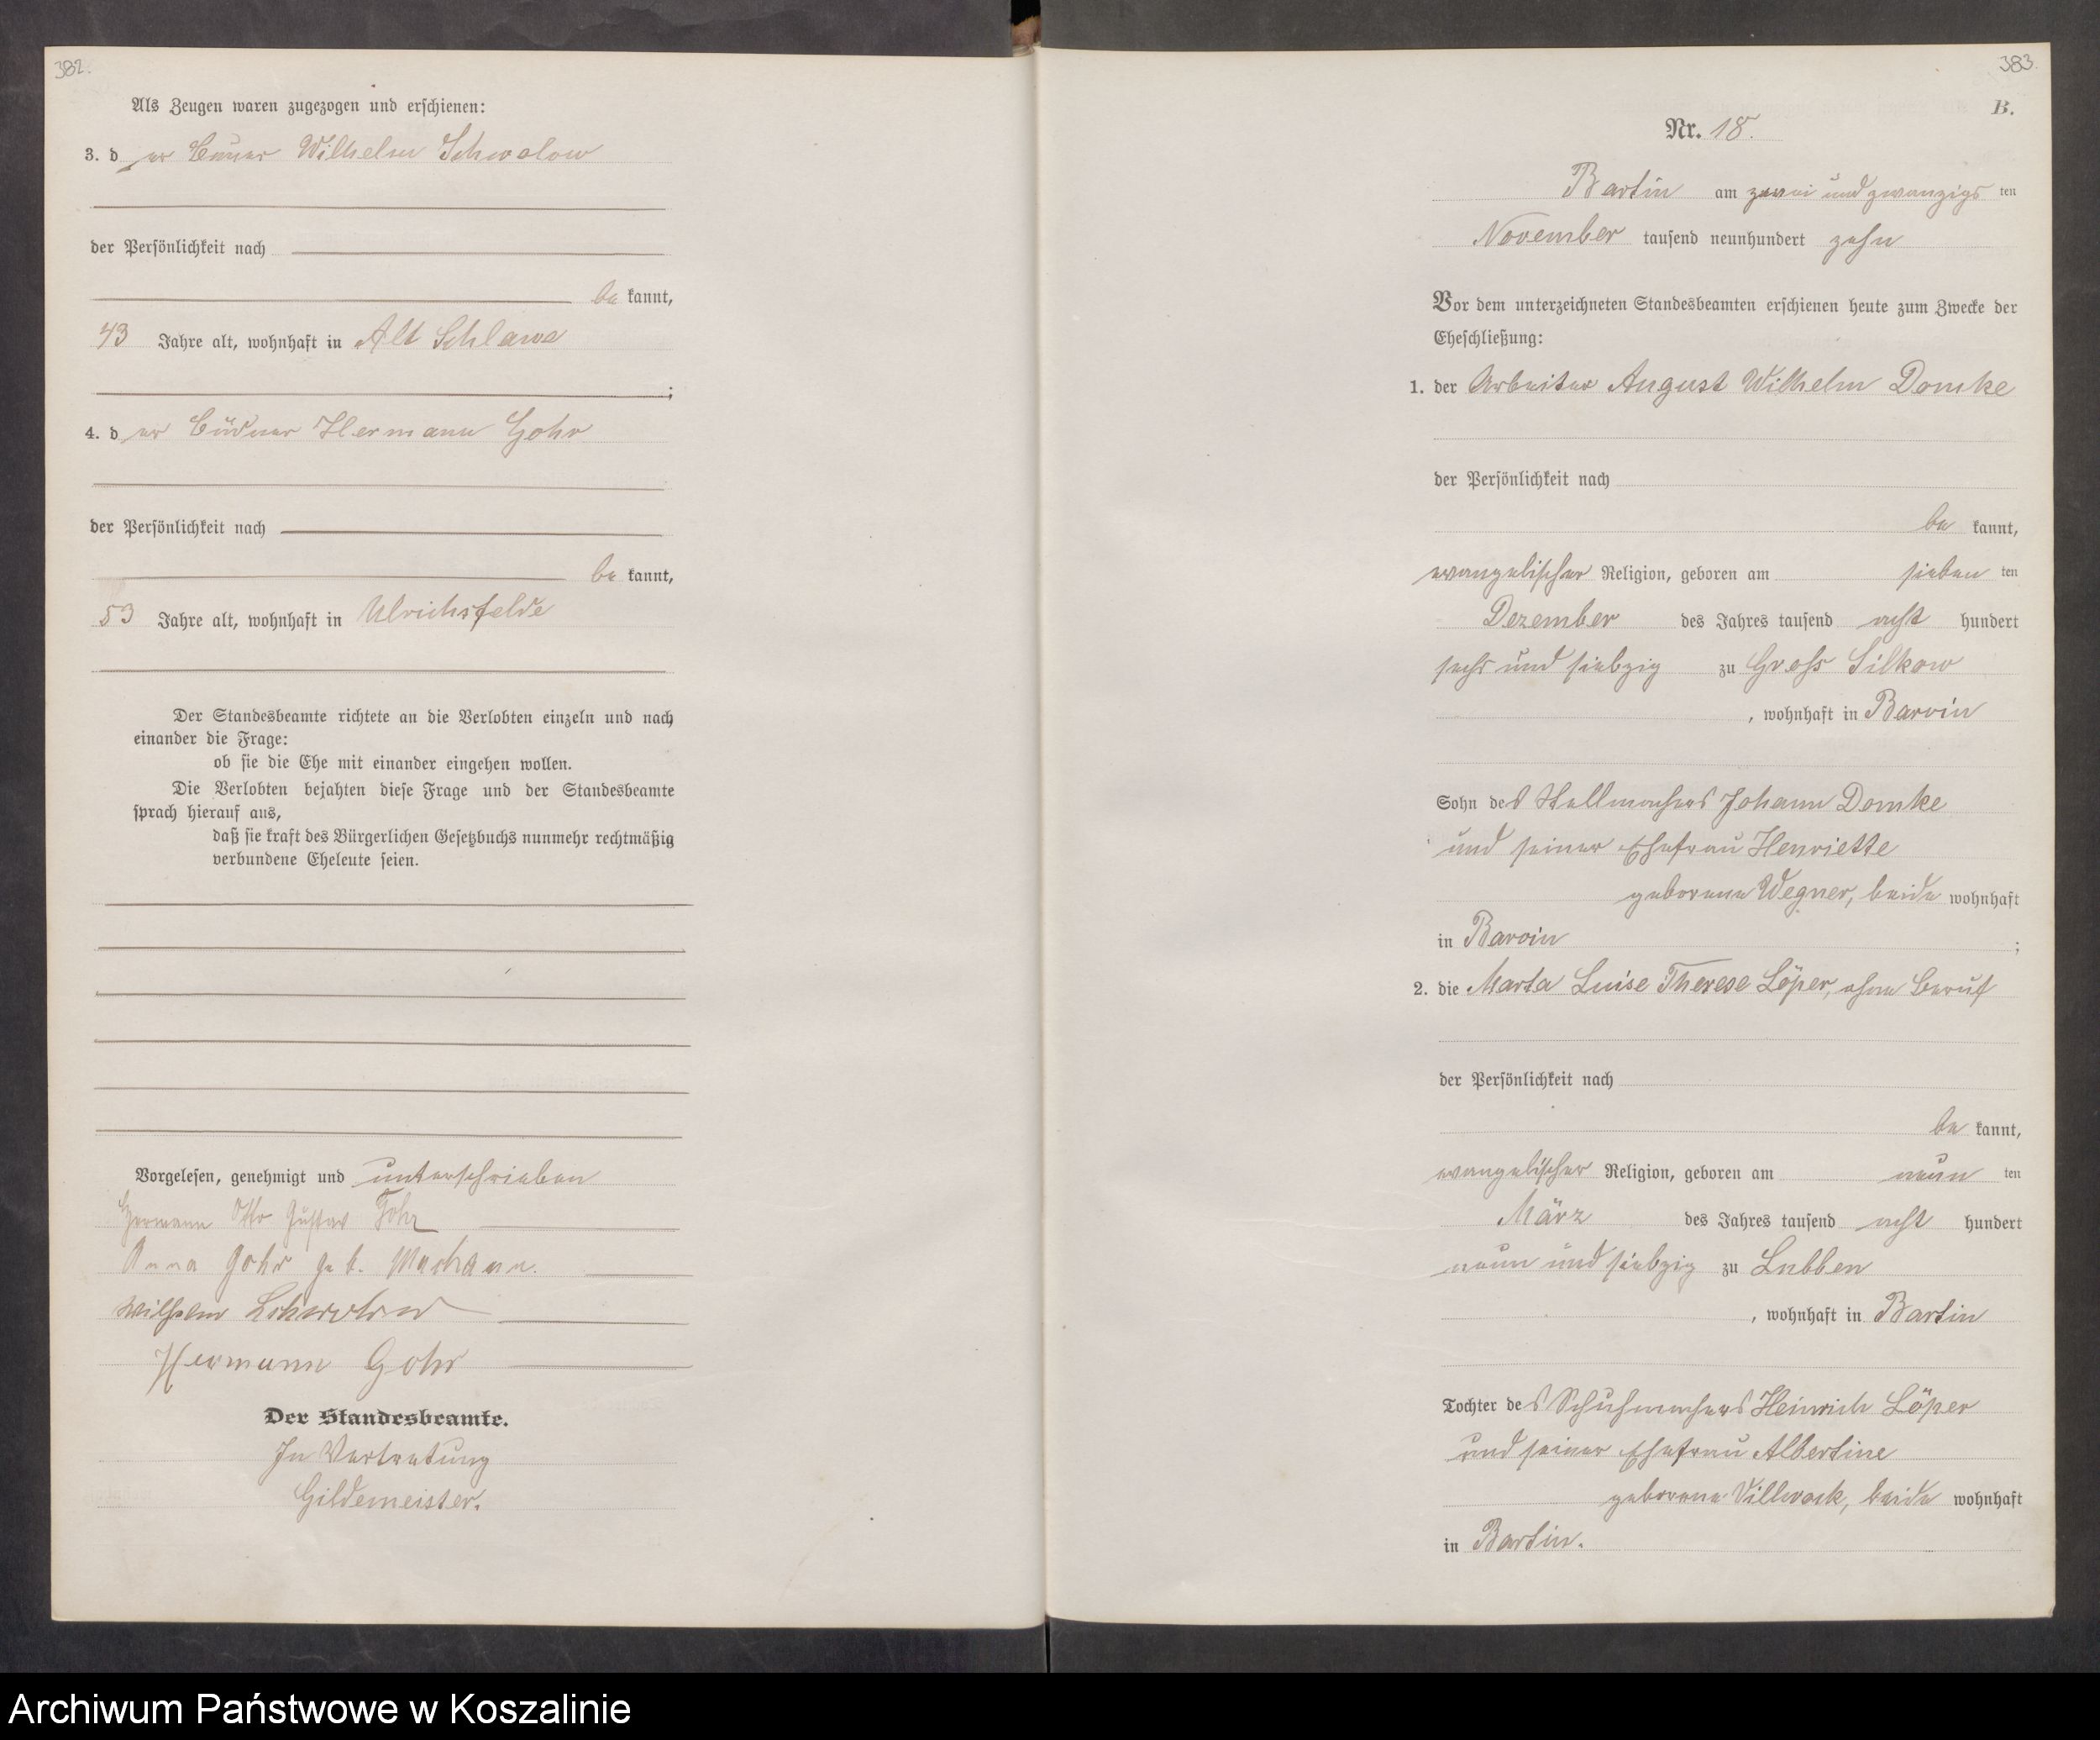 382.
Als Zeugen waren zugezogen und erschienen:
3. der Bauer Wilhelm Schwolow
der Persönlichkeit nach
bekannt,
43 Jahre alt, wohnhaft in Alt Schlawe
;
4. der Büdner Hermann Gohr
der Persönlichkeit nach
bekannt,
53 Jahre alt, wohnhaft in Ulrichsfelde
Der Standesbeamte richtete an die Verlobten einzeln und nach
einander die Frage:
ob sie die Ehe mit einander eingehen wollen.
Die Verlobten bejahten diese Frage und der Standesbeamte
sprach hierauf aus,
daß sie kraft des Bürgerlichen Gesetzbuchs nunmehr rechtmäßig
verbundene Eheleute seien.
Vorgelesen, genehmigt und unterschrieben
Hermann Otto Gustav Gohr
Anna Gohr geb.
Wilhelm Schwolow
Hermann Gohr
Der Standesbeamte.
In Vertretung
Gildemeister.
383.
B.
Nr. 18.
Bartin am zwei und zwanzigsten
November tausend neunhundert zehn
Vor dem unterzeichneten Standesbeamten erschienen heute zum Zwecke der
Eheschließung:
1. der Arbeiter August Wilhelm Domke
der Persönlichkeit nach
bekannt,
evangelischer Religion, geboren am siebenten
Dezember des Jahres tausend achthundert
sechs und siebzig zu Gross Silkow
, wohnhaft in Barvin
Sohn des Stellmachers Johann Domke
und seiner Ehefrau Henriette
geborene Wegner, beide wohnhaft
in Barvin ;
2. die Marta Luise Therese Löper, ohne Beruf
der Persönlichkeit nach
bekannt,
evangelischer Religion, geboren am neunten
März des Jahres tausend achthundert
neun und siebzig zu Lubben
, wohnhaft in Bartin
Tochter des Schuhmachers Heinrich Löper
und seiner Ehefrau Albertine
geborene Villwock, beide wohnhaft
in Bartin.
Archiwum Państwowe w Koszalinie